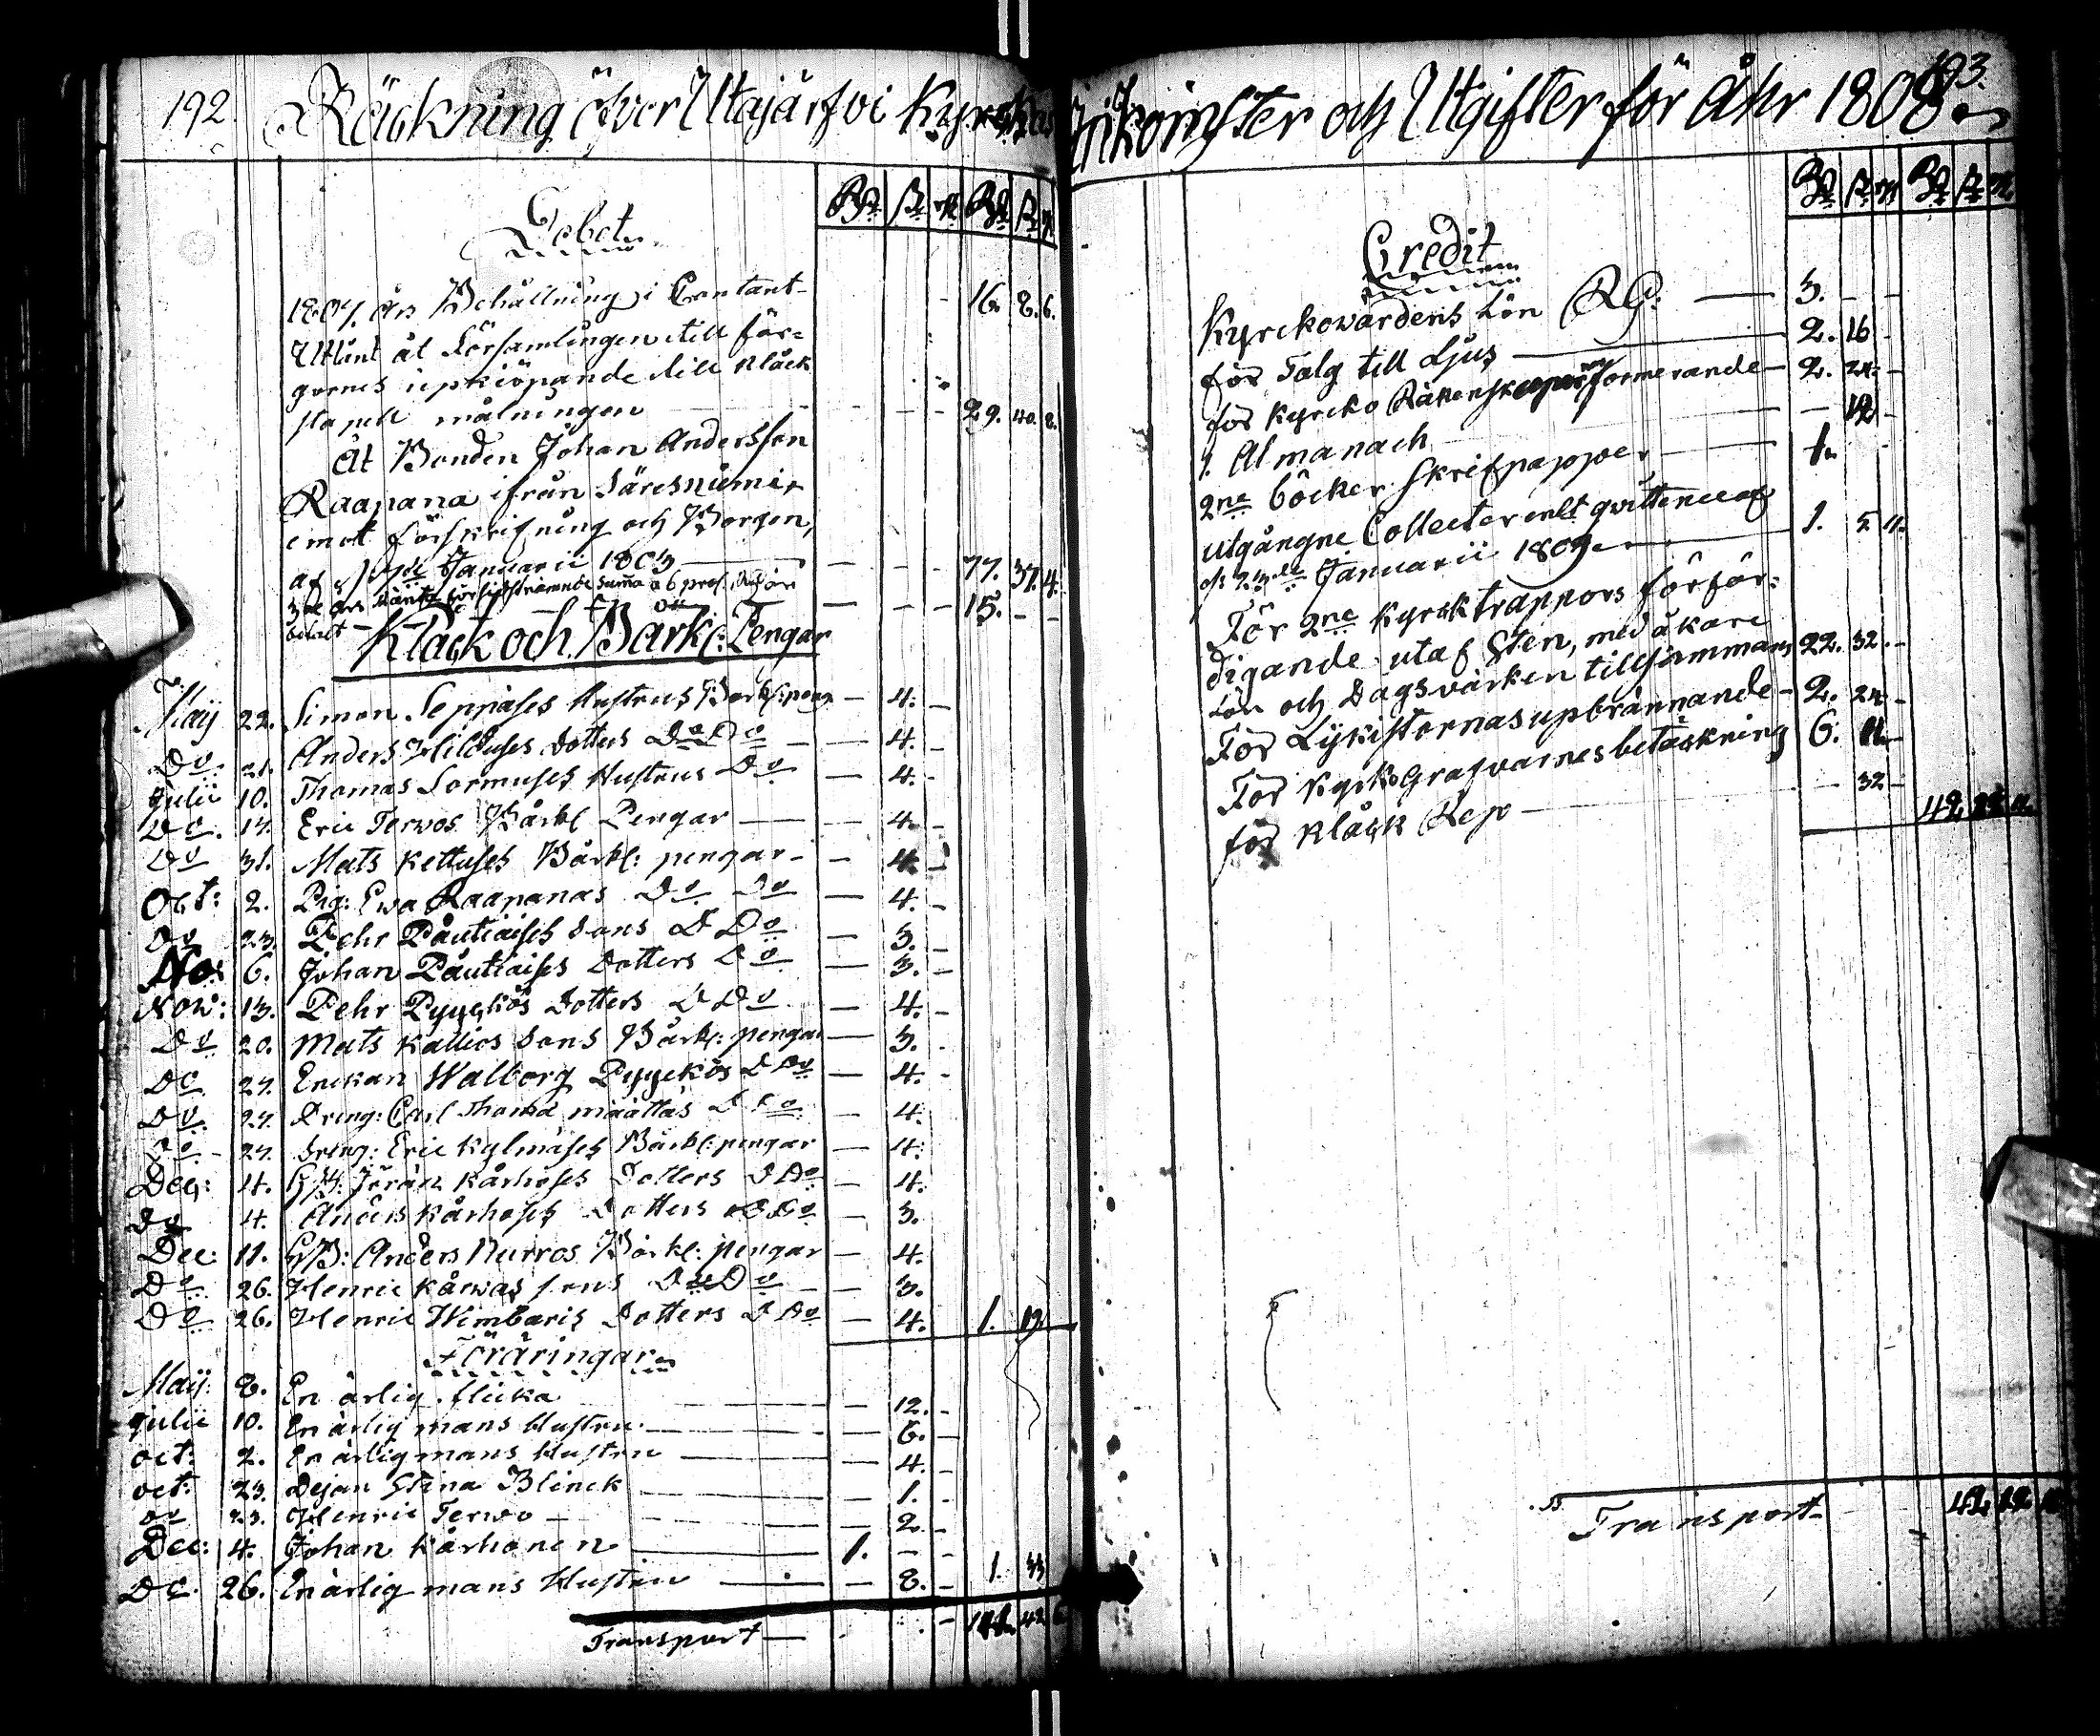 192. Räckning öfver Utajärfvi Kyrckas
Debet
Rd ß rs Rd ß rs
1807. års Behållning i Contant - 16. 8. 6.
Utlånt åt Församlingen till fär-
gornes upkiöpande till Klåck
stapell målningen - - - 29. 40. 8.
Åt Bonden Johan Andersson
Raapana ifrån Säresniemi,
emot förskrifning och Borgen,
af Januarii 1803 - - - 77. 37. 4.
3ne års Ränta för sistnämnde Summa á 6 proc.
betalt - - - 15. - -
Klåck och Bårkl: Pengar
Maij 22. Simon Seppäses Hustrus Bårkl: peng - 4. -
Do 21. Anders Hilduses dotters Do Do - 4. -
Julii 10. Thomas Sormuses Hustrus Do - 4. -
Do. 17. Eric Terwos Bårkl Pengar - 4. -
Do 31. Mats Kettuses Bårkl: pengar - 4. -
Oct: 2. Pig: Ewa Raapanas Do Do - 4. -
Do 23. Pehr Påutiaises Sons D Do - 3. -
No: 6. Johan Påutiaises Dotters Do - 3. -
Now: 13. Pehr Pyyckös Dotters D Do - 4. -
Do 20. Mats Kallios Sons Bårkl: pengar - 3. -
Do 27. Enckan Walborg Pyyckös D Do - 4. -
Do. 27. Dreng: Carl Thomæ Määttäs D Do - 4.
Do - 27. Dreng: Eric Kylmäses Bårkl: pengar - 4.
Dec: 4. GB: Jöran Kårhoses Dotters D Do - 4.
Do 4. Anders Kårhoses Dotters D Do - 3.
Dec: 11. GB: Anders Nurros Bårkl: pengar - 4.
Do 26. Henric Kårwas sons Do Do - 3.
Do 26. Henric Wimbaris Dotters D Do - 4. 1. 19.
Föräringar
Maij: 8. En ärlig flicka - 12. -
Julii 10. En ärlig mans Hustru - 6. -
oct: 2. En ärlig mans Hustru - 4. -
oct: 23. Dejan Stina Blinck - 1. -
Do 23. Henric Terwo - 2. -
Dec: 4. Johan Kårhonen 1. - -
Do. 26. En ärlig mans Hustru - 8. - 1. 33
Transport
Inkomster och Utgifter för Åhr 1808. 193.
Rd ß rs Rd ß rs
Credit
Kyrckowärdens Lön RG: - 3. - -
för Talg till Ljus - 2. 16 -
för Kyrcko Räkenskapernes formerande - 2. 24. -
1. Almanach - 12 -
2ne böcker Skrifpapper - 1.
utgångne Collecter enligt qvittence af
d: 23de Januarii 1809 - 1. 5 11.
För 2ne Kyrcktrappors förfär-
digande utaf Sten, med åkare
Lön och Dagsvärken tillsammans 22. 32. -
För Lijkistornas upbrännande - 2. 24 -
För Kyrko Grafvarnes betäckning 6. 11. -
för Klåck Rep - 32 -
Transport